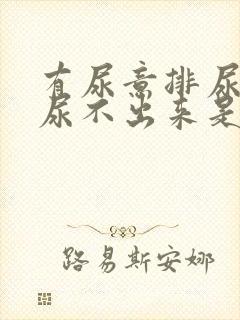 有尿意排尿
尿不出来是
路易斯安娜